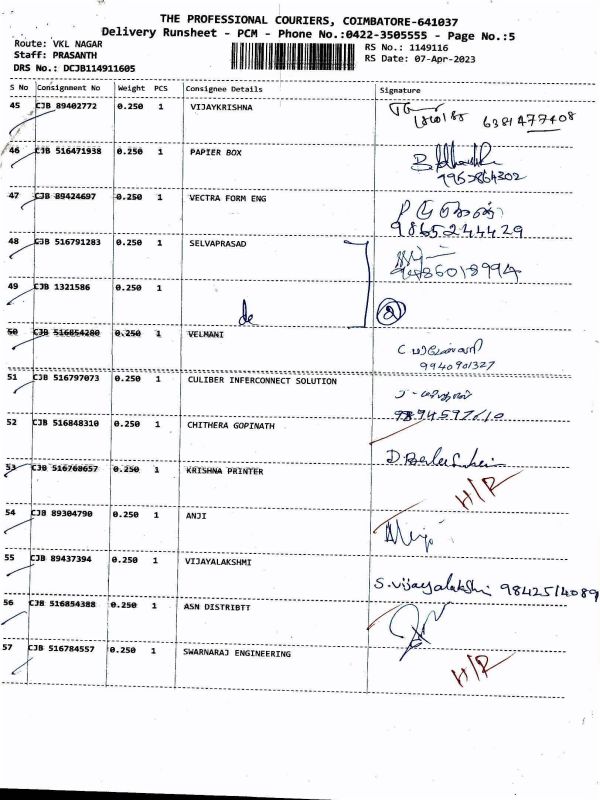 THE PROFESSIONAL COURIERS, COIMBATORE-641037
Delivery Runsheet - PCM - Phone No.:0422-3505555 - Page No.:5
Route: VKL NAGAR
Staff: PRASANTH
DRS No.: DCJB114911605
RS No.: 1149116
RS Date: 07-Apr-2023
S No Consignment No Weight PCS Consignee Details Signature
45 CJB 89402772 0.250 1 VIJAYKRISHNA
6381477408
46 CJB 516471938 0.250 1 PAPIER BOX
47 CJB 89424697 0.250 1 VECTRA FORM ENG
9865244429
48 CJB 516791283 0.250 1 SELVAPRASAD
49 CJB 1321586 0.250 1
de
2
50 CJB 516854280 0.250 1 VELMANI
9940901327
51 CJB 516797073 0.250 1 CULIBER INFERCONNECT SOLUTION
52 CJB 516848310 0.250 1 CHITHERA GOPINATH
53 CJB 516768657 0.250 1 KRISHNA PRINTER
H/R
54 CJB 89304790 0.250 1 ANJI
55 CJB 89437394 0.250 1 VIJAYALAKSHMI
S.vijayalakshi 9842514089
56 CJB 516854388 0.250 1 ASN DISTRIBTT
57 CJB 516784557 0.250 1 SWARNARAJ ENGINEERING
H/R